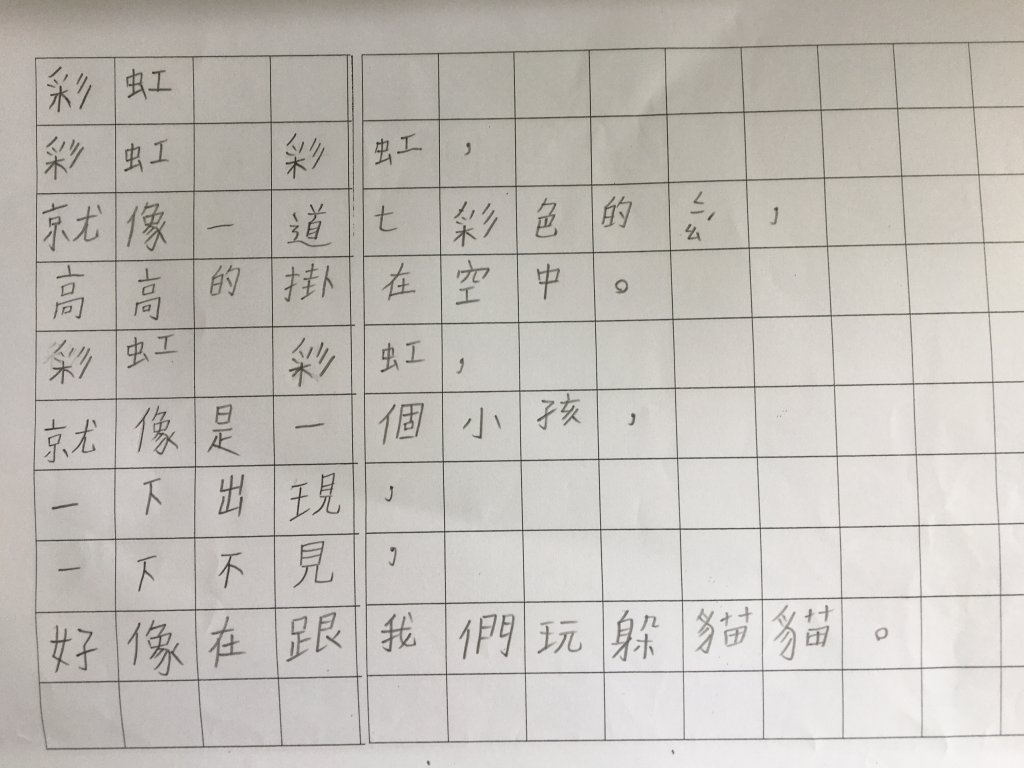 彩虹
彩虹 彩虹，
就像一道七彩色的ㄑㄧㄠˊ，
高高的掛在空中。
彩虹 彩虹，
就像是一個小孩，
一下出現，
一下不見，
好像在跟我們玩躲貓貓。